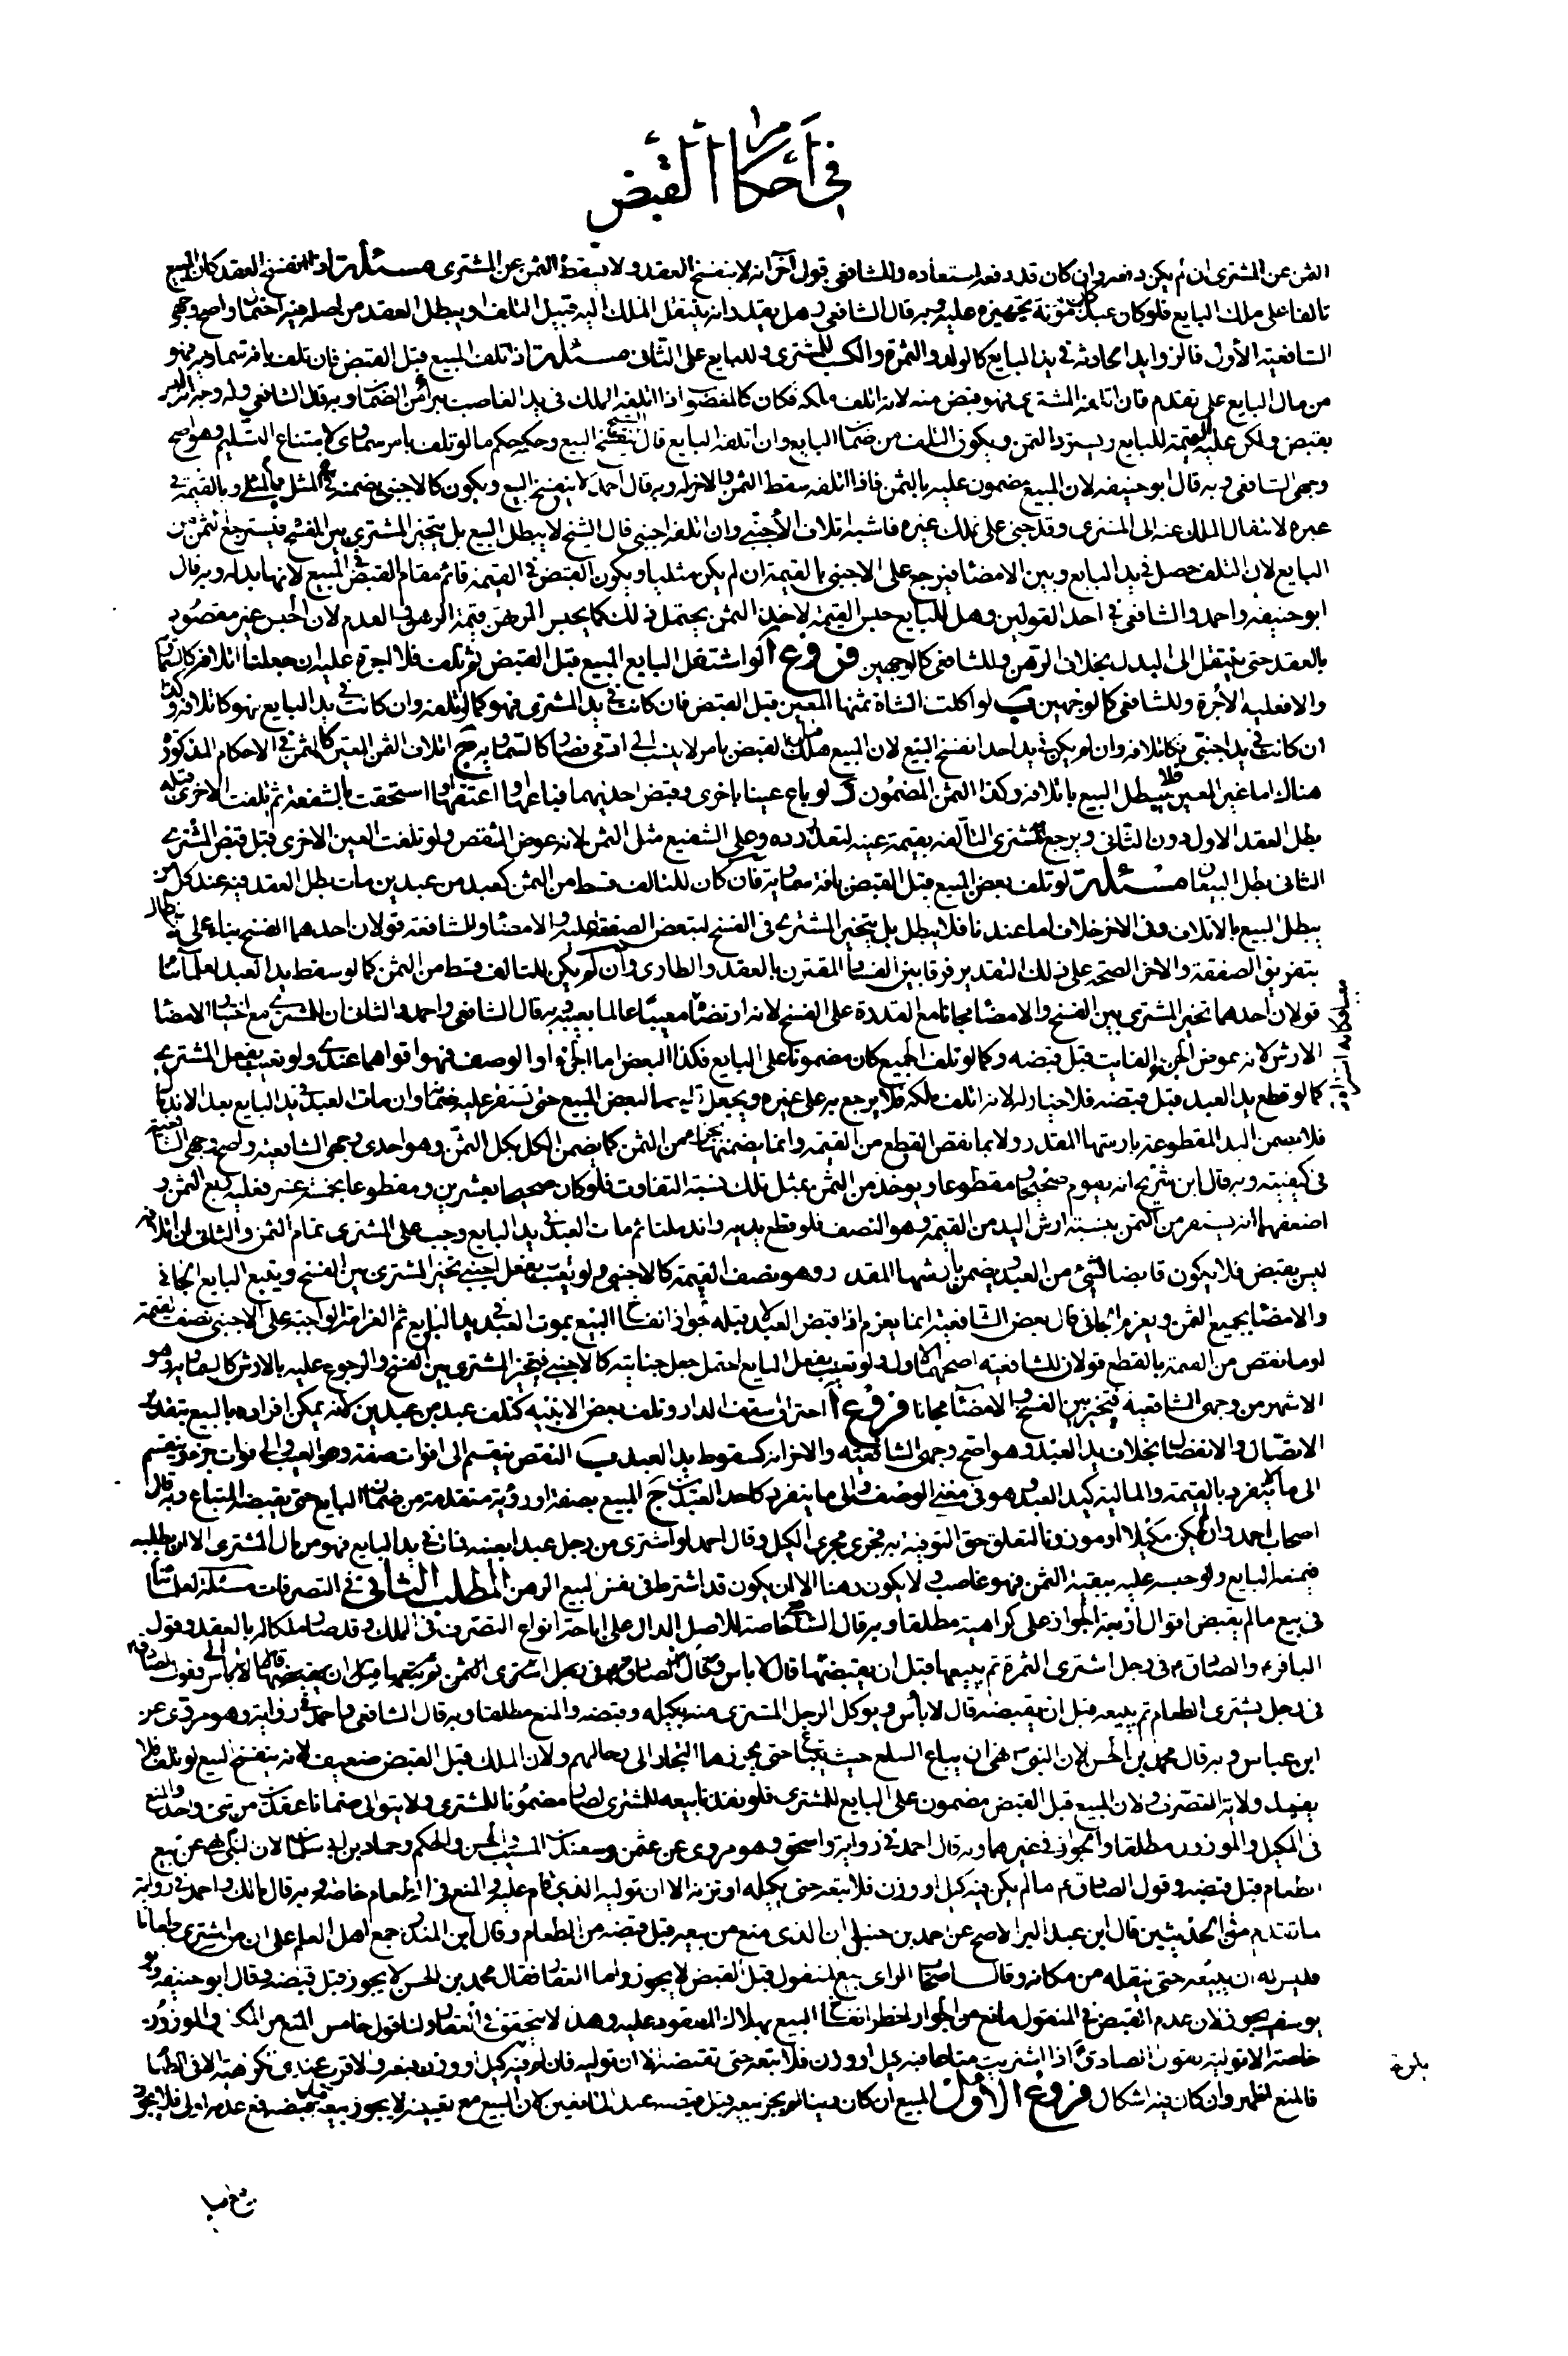 في أحكام القبض
الثمن عن المشتري ان لم يكن دفعه وان كان قد دفعه استعاده وللشافعي قول اخر انه لا ينفسخ العقد ولا يسقط الثمن عن المشتري مسئلة اذا انفسخ العقد كان المبيع
تالفا على ملك البايع فلو كان عبدا كان مؤنة تجهيزه عليه وبه قال الشافعي وهل يقدر انه ينتقل الملك اليه قبيل التلف او يبطل العقد من اصله فيه احتمال واصح وجهي
الشافعية الاول فالزوايد الحادثة في يد البايع كالولد والثمرة والكسب للمشتري وللبايع على الثاني مسئلة اذا تلف المبيع قبل القبض فان تلف بافة سماوية فهو
من مال البايع على تقدم فان اتلفه المشتري فهو قبض منه لانه اتلف ملكه فكان كالمغصوب اذا اتلفه المالك في يد الغاصب يبرأ من الضمان وبه قال الشافعي وله وجه انه ليس
بقبض ولكن عليه القيمة للبايع ويسترد الثمن ويكون التلف من ضمان البايع وان اتلفه البايع قال الشيخ ينفسخ البيع وحكمه حكم ما لو تلف بامر سماوي لامتناع التسليم وهو اصح
وجهي الشافعي وبه قال ابو حنيفة لان المبيع مضمون عليه بالثمن فاذا اتلفه سقط الثمن والاخر له وبه قال احمد لا ينفسخ البيع ويكون كالاجنبي يضمنه في المثل بالمثل وبالقيمة في
غيره لانتقال الملك عنه الى المشتري وقد جنى على ملك غيره فاشبه اتلاف الأجنبي وان اتلفه اجنبي قال الشيخ لا يبطل البيع بل يتخير المشتري بين الفسخ فيسترجع الثمن من
البايع لان التلف حصل في يد البايع وبين الامضاء فيرجع على الاجنبي بالقيمة ان لم يكن مثليا ويكون القبض في القيمة قائم مقام القبض في المبيع لانها بدله وبه قال
ابو حنيفة واحمد والشافعي في احد القولين وهل للبايع حبس القيمة لاخذ الثمن يحتمل ذلك كما يحبس المرتهن قيمة الرهن والعدم لان الحبس غير مقصود
بالعقد حتى ينتقل الى البدل بخلاف الرهن وللشافعي كالوجهين فروع أ لو استغل البايع المبيع قبل القبض ثم تلف فلا اجرة عليه ان جعلنا اتلافه كالسماوي
والا فعليه الأجرة وللشافعي كالوجهين ب لو اكلت الشاة ثمنها المعين قبل القبض فان كانت في يد المشتري فهو كما لو اتلفه وان كانت في يد البايع فهو كاتلافه وكذا
ان كانت في يد اجنبي فكاتلافه وان لم يكن في يد احد انفسخ البيع لان المبيع هلك قبل القبض بامر لا ينسب الى ادمي فصار كالسماوية ج اتلاف الثمن المعين كالثمن في الاحكام المذكورة
هناك اما غير المعين فلا يبطل البيع باتلافه وكذا الثمن المضمون د لو باع عينا باخرى وقبض احديهما فباعها او اعتقها او استحقت بالشفعة ثم تلفت الاخرى قبله
بطل العقد الاول دون الثاني ويرجع مشتري التالفة بقيمة عينه لتعذر رده وعلى الشفيع مثل الثمن لانه عوض الشقص ولو تلفت العين الاخرى قبل قبض المشتري
الثاني بطل البيعان مسئلة لو تلف بعض المبيع قبل القبض بافة سماوية فان كان للتالف قسط من الثمن كعبد من عبدين مات بطل العقد فيه عند كل من
يبطل البيع بالاتلاف وفي الاخر خلاف اما عندنا فلا يبطل بل يتخير المشتري في الفسخ لتبعض الصفقة عليه والامضاء وللشافعية قولان احدهما الفسخ بناء على
بتفريق الصفقة والاخر الصحة على ذلك التقدير فرقا بين الفساد المقترن بالعقد والطاري وان لم يكن للتالف قسط من الثمن كما لو سقط يد العبد لعلمائنا
قولان احدهما تخير المشتري بين الفسخ والامضاء مجانا مع القدرة على الفسخ لانه ارتضاه معيبا عالما بعيبه وبه قال الشافعي واحمد والثاني ان للمشتري مع اختيار الامضاء
الارش لانه عوض الجزء الفايت قبل قبضه وكما لو تلف الجميع كان مضمونا على البايع فكذا البعض اما الجزء او الوصف فهو اقواهما عندي ولو تعيب بفعل المشتري
كما لو قطع يد العبد قبل قبضه فلا خيار له لانه اتلف ملكه فلا يرجع به على غيره ويجعل قابضا لبعض المبيع حتى تستقر عليه ضمانه وان مات العبد في يد البايع بعد الاندمال
فلا يضمن اليد المقطوعة بارشها المقدر ولا بما نقص القطع من القيمة وانما يضمنها بجزء من الثمن كما يضمن الكل بكل الثمن وهو احد وجهي الشافعية واصح وجهي الشافعية
في كيفيته وبه قال ابن شريح انه يقوم صحيحا مقطوعا ويوخذ من الثمن بمثل تلك نسبة التفاوت فلو كان صحيحا بعشرين ومقطوعا بخمسة عشر فعليه ربع الثمن و
اضعفهما انه يستقر من الثمن بنسبة ارش اليد من القيمة وهو النصف فلو قطع يديه واندملتا ثم مات العبد في يد البايع وجب على المشتري تمام الثمن والثاني ان اتلافه
ليس بقبض فلا يكون قابضا لشيء من العبد ويضمن بارشها المقدر وهو نصف القيمة كالاجنبي ولو تعيب بفعل اجنبي تخير المشتري بين الفسخ ويتبع البايع الجاني
والامضاء بجميع الثمن ويغرم الجاني قال بعض الشافعية انما يغرم اذا قبض العبد لا قبله لجواز انفساخ البيع بموت العبد في يد البايع ثم الغرامة الواجبة على الاجنبي نصف القيمة
او ما نقص من القيمة بالقطع قولان للشافعية اصحهما الاول ولو تعيب بفعل البايع احتمل جعل جنايته كالاجنبي فيتخير المشتري بين الفسخ والرجوع عليه بالارش كالسماوية وهو
الاشهر من وجهي الشافعية فيتخير بين الفسخ والامضاء مجانا فروع أ احتراق سقف الدار وتلف بعض الابنية كتلف عبد من عبدين لانه يمكن افراده بالبيع بتقدير
الاتصال والانفصال بخلاف يد العبد وهو اصح وجهي الشافعية والاخر انه كسقوط يد العبد ب النقص ينقسم الى فوات صفة وهو العيب والى فوات جزء وينقسم
الى ما لا ينفرد بالقيمة والمالية كيد العبد وهو في معنى الوصف والى ما ينفرد كاحد العبدين ج المبيع بصفة او رؤية متقدمة من ضمان البايع حتى يقبضه المبتاع وبه قال
اصحاب احمد وان لم يكن مكيلا او موزونا لتعلق حق التوفية به فجرى مجرى الكيل وقال احمد لو اشترى من رجل عبدا بعينه فمات في يد البايع فهو من مال المشتري الا ان يطلبه
فيمنعه البايع ولو حبسه عليه ببقية الثمن فهو غاصب ولا يكون رهنا الا ان يكون قد اشترط في نفس البيع الرهن المطلب الثاني في التصرفات مسئلة لعلمائنا
في بيع ما لم يقبض اقوال اربعة الجواز على كراهية مطلقا وبه قال خاصة للاصل الدال على اباحة انواع التصرف في الملك وقد صار ملكا له بالعقد وقول
الباقر والصادق في رجل اشترى الثمرة ثم يبيعها قبل ان يقبضها قال لا باس وقال الصادق في رجل اشترى الثمن ثم يبيعها قبل ان يقبضها قال لا باس وقول الصادق
في رجل يشتري الطعام ثم يبيعه قبل ان يقبضه قال لا بأس ويوكل الرجل المشتري منه بكيله وقبضه والمنع مطلقا وبه قال الشافعي واحمد في رواية وهو مروي عن
ابن عباس وبه قال محمد بن الحسن لان النبي نهى ان يباع السلع حيث تبتاع حتى يحوزها التجار الى رحالهم ولان الملك قبل القبض ضعيف لانه ينفسخ البيع لو تلف فلا
يفيد ولاية التصرف ولان المبيع قبل القبض مضمون على البايع للمشتري فلو نفذنا بيعه للمشتري لصار مضمونا للمشتري ولا يتوالى ضمانا عقدين من شيء واحد والمنع
في المكيل والموزون مطلقا والجواز في غيرهما وبه قال احمد في رواية واسحق وهو مروي عن عثمن وسعيد بن المسيب والحسن والحكم وحماد بن ابي سليمان لان النبي نهى عن بيع
الطعام قبل قبضه وقول الصادق ما لم يكن فيه كيل او وزن فلا تبعه حتى يكيله او تزنه الا ان توليه الذي قام عليه والمنع في الطعام خاصة وبه قال مالك واحمد في رواية
ما تقدم من الحديثين قال ابن عبد البر الاصح عن احمد بن حنبل ان الذي منع من بيعه قبل قبضه من الطعام وقال ابن المنذر اجمع اهل العلم على ان من اشترى طعاما
فليس له ان يبيعه حتى ينقله من مكانه وقال اصحاب الراى بيع المنقول قبل القبض لا يجوز واما العقار فقال محمد بن الحسن لا يجوز قبل قبضه وقال ابو حنيفة وابو
يوسف يجوز لان عدم القبض في المنقول مانع من الجواز لخطر انفساخ البيع بهلاك المعقود عليه وهذا لا يتحقق في العقار ولنا قول خامس المنع من المكيل والموزون
خاصة الا تولية لقول الصادق اذا اشتريت متاعا فيه كيل او وزن فلا تبعه حتى تقبضه الا ان توليه فان لم يكن فيه كيل او وزن فبعه والاقرب عندي الكراهية الا في الطعام
فالمنع اظهر وان كان فيه اشكال فروع الأول المبيع ان كان دينا لم يجز بيعه قبل قبضه عند المانعين لان المبيع مع تعيينه لا يجوز بيعه قبل قبضه فمع عدمه اولى فلا يجوز